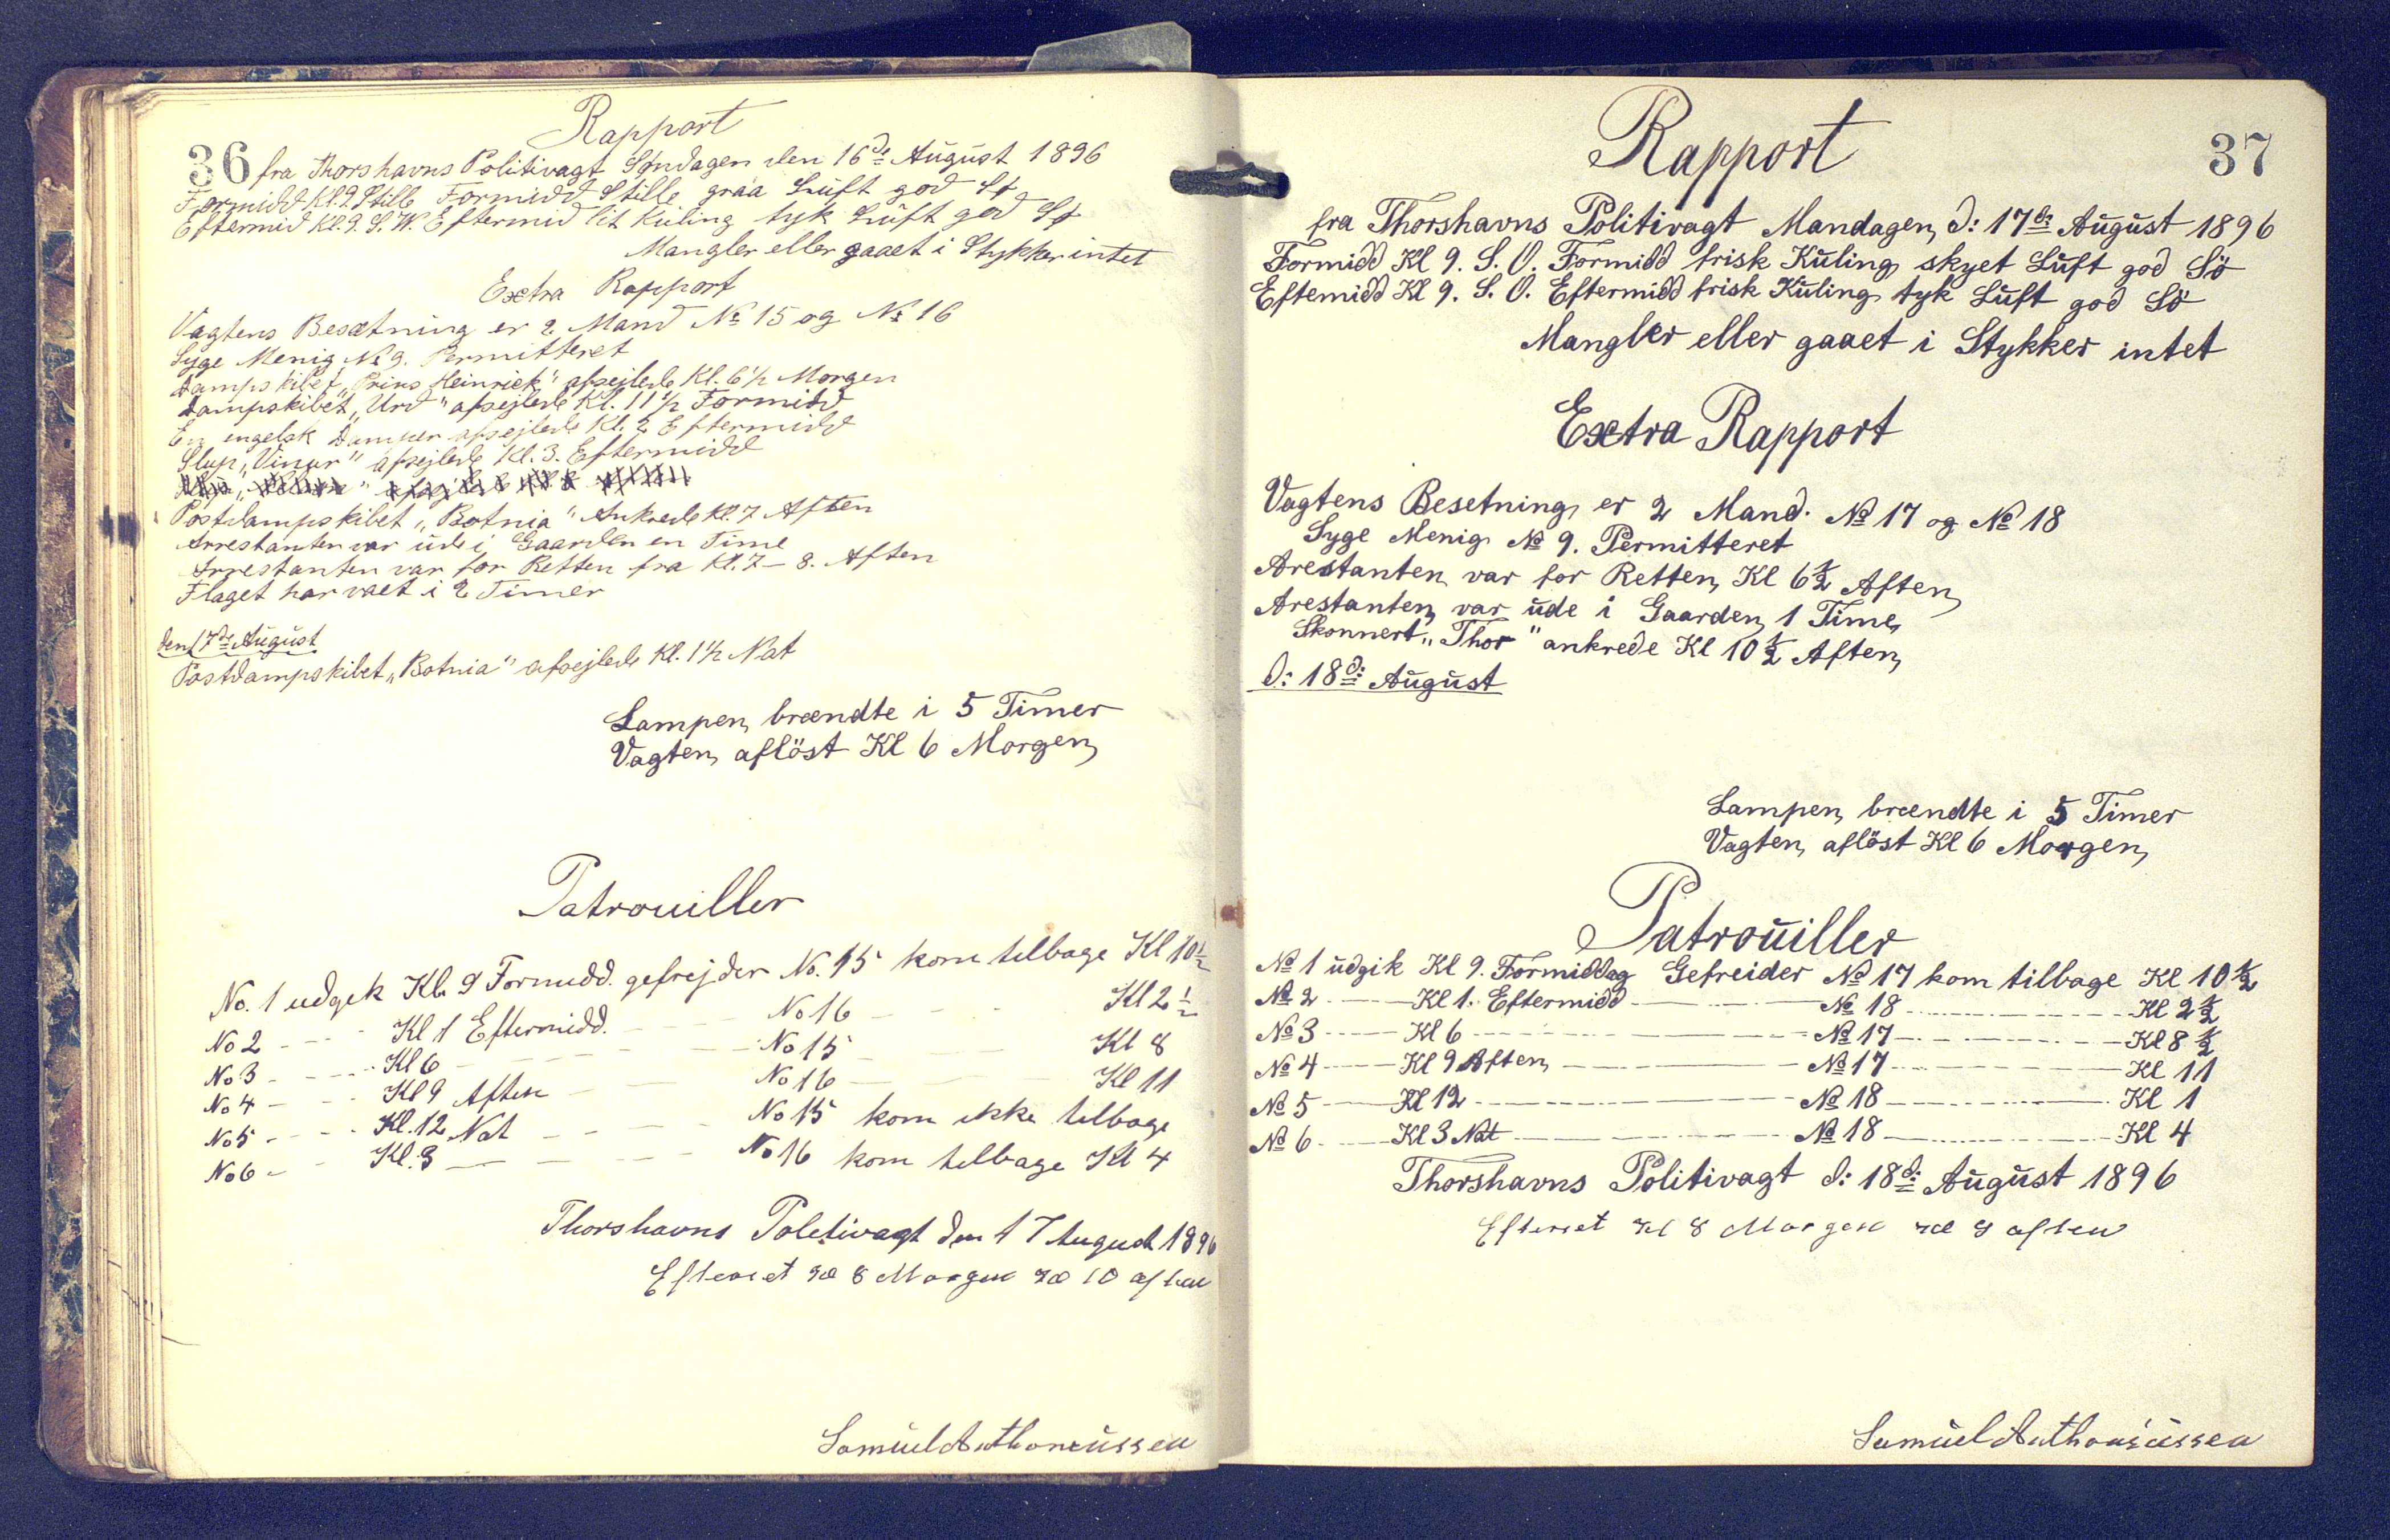 Rapport
36 fra Thorshavns Politivagt Søndagen den 16de August 1896
Formidd Kl.9 Stille Formidd Stille graa Luft god Sø
Eftermid Kl.9. S.W. Eftermid lit Kuling tyk Luft god Sø
Mangler eller gaaet i Stykker intet
Extra Rapport
Vagtens Besætning er 2. Mand No 15 og No 16
Syge Menig No 9. Permitteret
Dampskibet „Prins Heinrich" afsejlede Kl. 6½ Morgen
Dampskibet „Urd" afsejlede Kl. 11½ Formidd
En engelsk Damper afsejlede Kl. 2 Eftermidd
Slup „Vinur" afsejlede Kl. 3. Eftermidd
Postdampskibet „Botnia" Ankrede Kl. 7 Aften
Arrestanten var ude i Gaarden en Time
Arrestanten var for Retten fra Kl. 7 - 8. Aften
Flaget har vaet i 2 Timer
den 17de August
Postdampskibet „Botnia" afsejlede Kl. 1½ Nat
Lampen brændte i 5 Timer
Vagten aflöst Kl 6 Morgen
Patrouiller
No. 1 udgek Kl. 9 Formidd. gefrejder No. 15 kom telbage Kl 10½
No 2 - - - Kl 1 Eftermidd. - - No 16 - - - Kl 2½
No 3 - - - Kl 6 - - - No 15 - - - Kl 8
No 4 - - - Kl 9 Aften - - - No 16 - - - Kl 11
No 5 - - - Kl. 12 Nat - - - No 15 kom ikke telbage
No 6 - - Kl. 3 - - - No 16 kom telbage Kl 4
Thorshavns Poletivagt den 17 August 1896
Efterset Kl 8 Morgen Kl 10 aften
Samuel Anthoniussen
37
Rapport
fra Thorshavns Politivagt Mandagen, d: 17de August 1896
Formidd Kl 9. S. O. Formidd frisk Kuling skyet Luft god Sö
Eftemidd Kl 9. S. O. Eftermidd frisk Kuling tyk Luft god Sö
Mangler eller gaaet i Stykker intet
Extra Rapport
Vagtens Besetning er 2 Mand. No 17 og No 18
Syge Menig No 9. Permitteret
Arestanten var for Retten Kl 6½ Aften
Arestanten var ude i Gaarden 1 Time
Skonnert „Thor" ankrede Kl 10½ Aften
d: 18d: August
Lampen brændte i 5 Timer
Vagten aflöst Kl 6 Morgen
Patrouiller
No 1 udgik Kl 9. Formiddag Gefreider No 17 kom tilbage Kl 10½
No 2 - - - Kl 1. Eftermidd - - - No 18 - - - Kl 2½
No 3 - - - Kl 6 - - - No 17 - - - Kl 8½
No 4 - - - Kl 9 Aften - - - No 17 - - - Kl 11
No 5 - - - Kl 12 - - - No 18 - - - Kl 1
No 6 - - - Kl 3 Nat - - - No 18 - - - Kl 4
Thorshavns Politivagt d: 18d: August 1896
Efterset Kl 8 Morgen Kl 9 aften
Samuel Anthoniussen